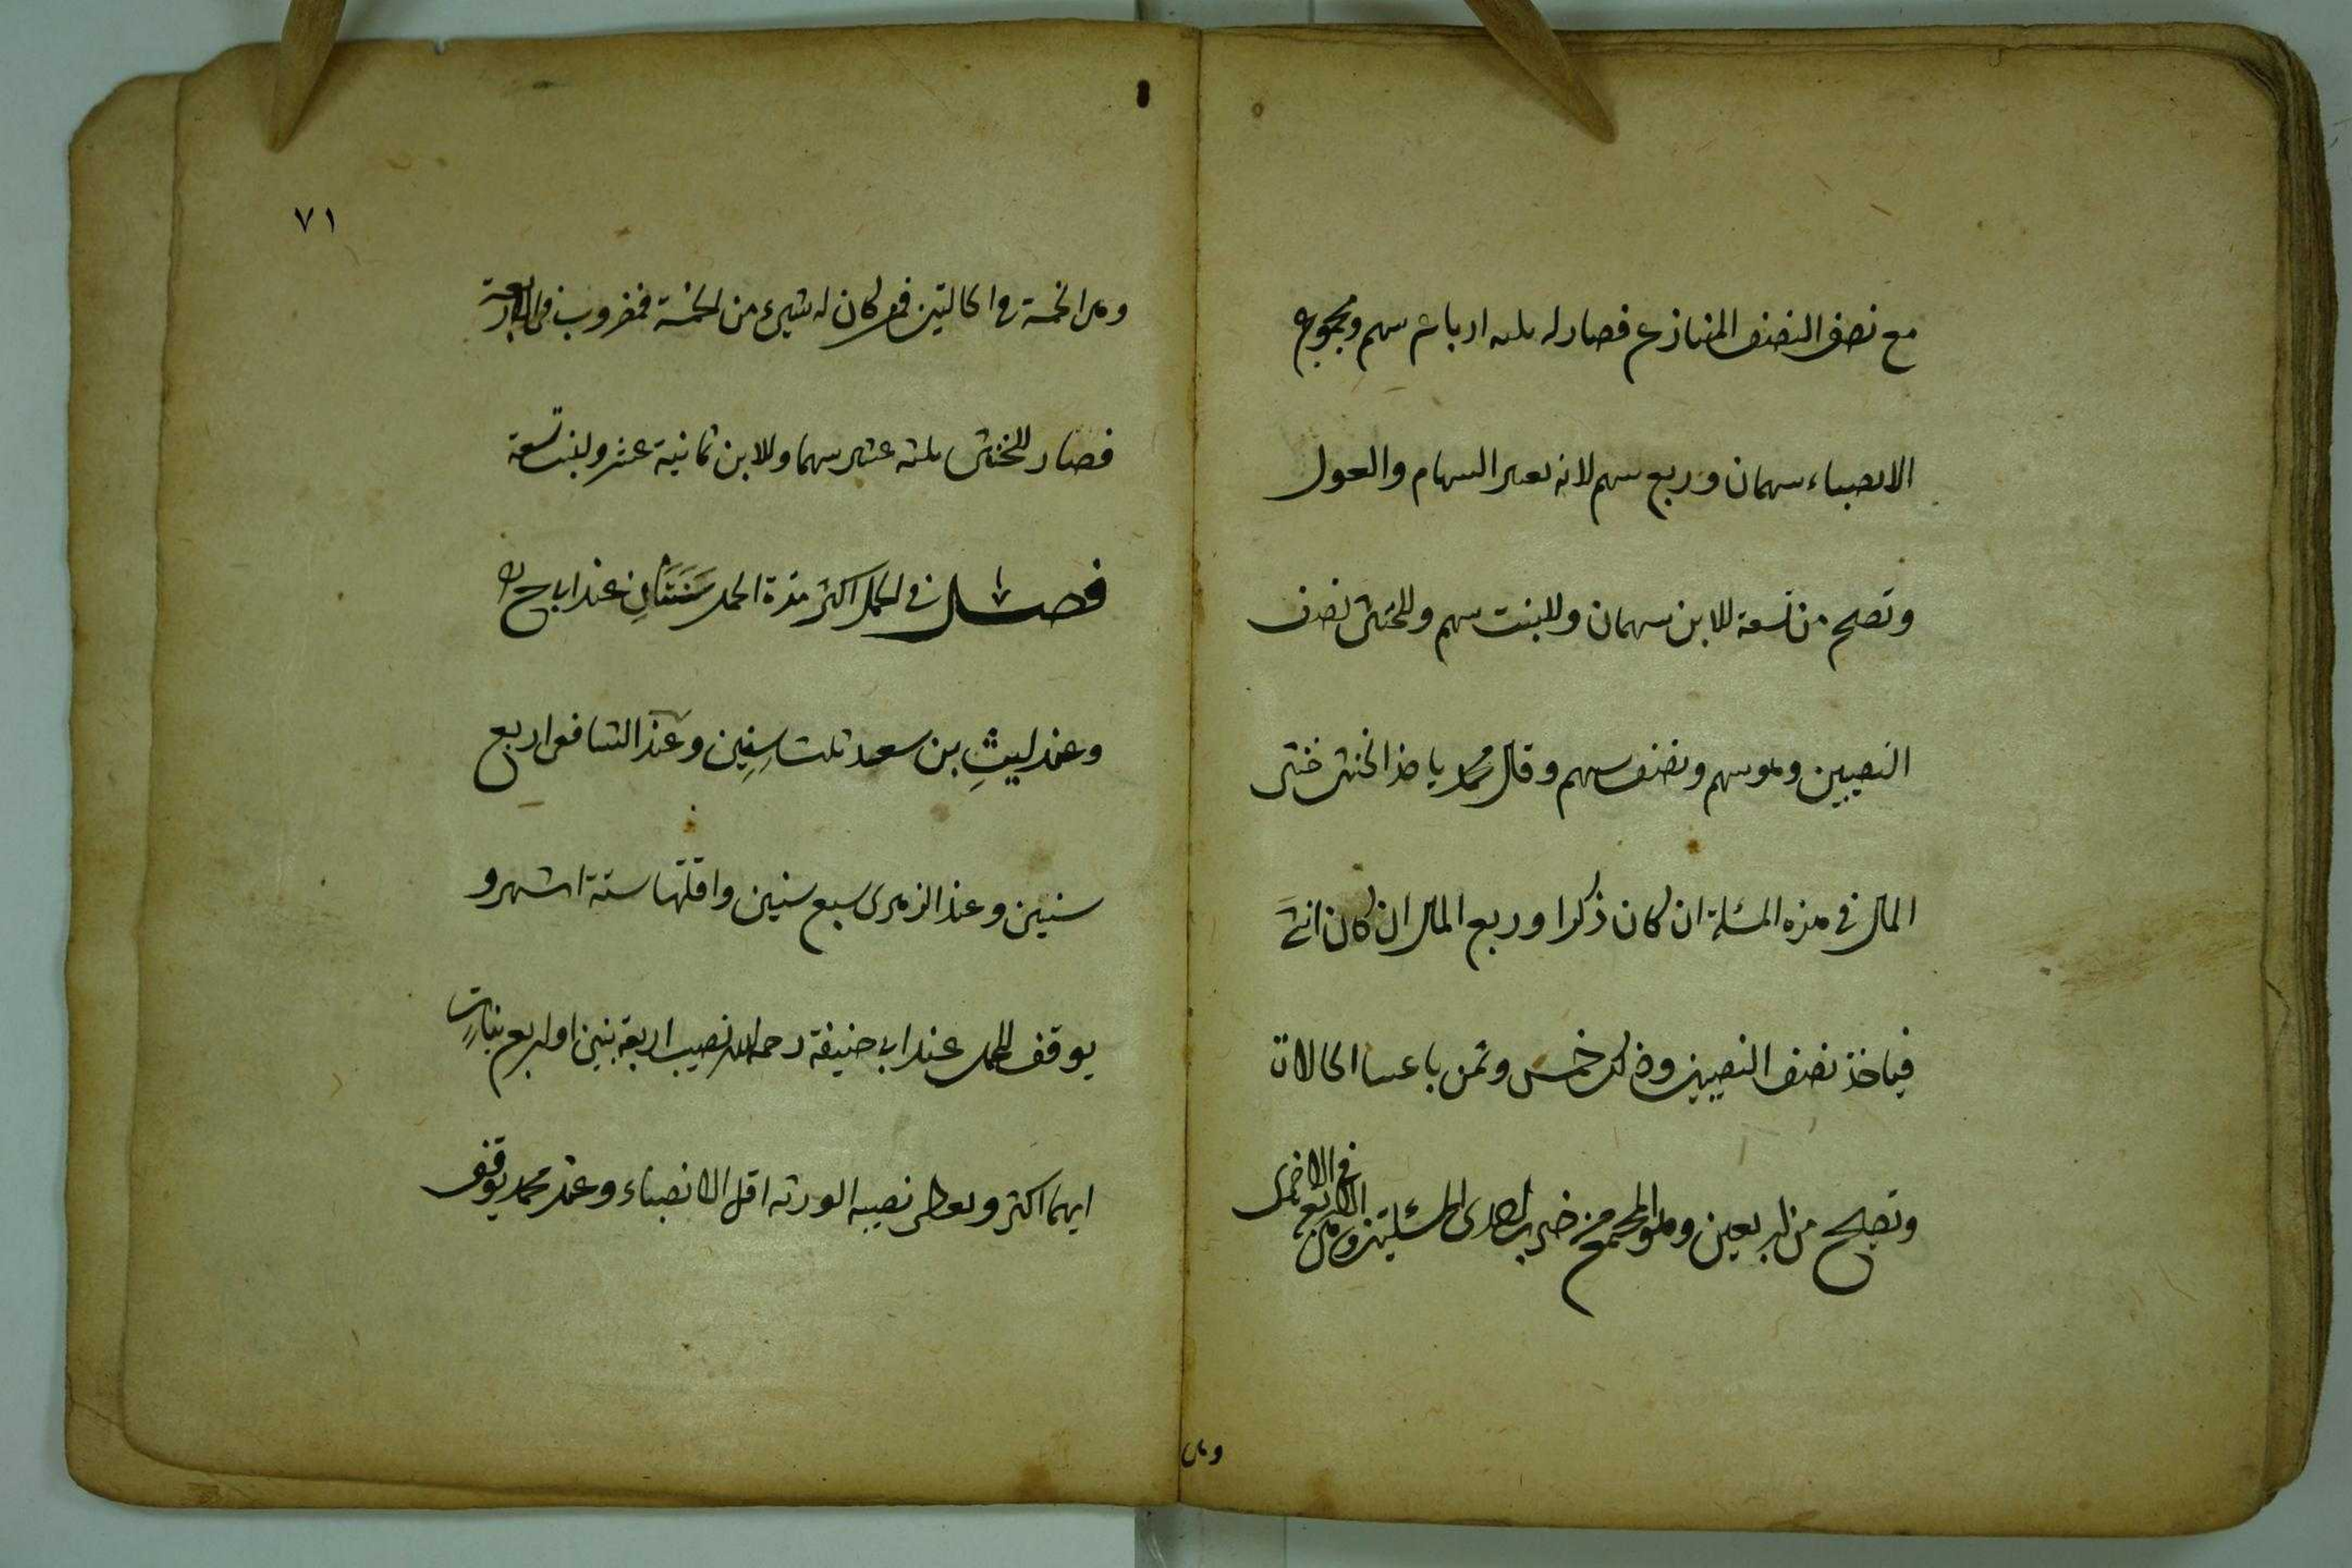 مع نصف النصف المتنازع فصار له ثلثه ارباع سهم ومجموع
الانصباء سهمان وربع سهم لانه يعتبر السهام والعول
وتصح من تسعة للابن سهمان وللبنت سهم وللخنثى نصف
النصيبين وهو سهم ونصف سهم وقال محمد ياخذ الخنثى خمسى
المال فى هذه المسئلة ان كان ذكرا وربع المال ان كان انثى
فياخذ نصف النصيبين وذلك خمس وثمن باعتبار الحالات
وتصح من اربعين وهو المجتمع من ضرب احدى المسئلتين وهى الاربع فى الاخرى
وهى
٧١
وهى الخمسة فى الحالتين فمن كان له شىء من الخمسة فمضروب فى الاربعة
فصار للخنثى ثلثه عشر سهما وللابن ثمانية عشر ولبنت تسعة
فصل فى الحمل اكثر مدة الحمل سَنَتَانِ عند ابى ح
وعند ليثِ بن سعد ثلث سِنِين وعند الشافعى اربع
سنين وعند الزهرى سبع سنين واقلها ستة اشهر و
يوقف للحمل عند ابى حنيفة رحمه الله نصيب اربعة بنين او اربع بنات
ايهما اكثر ويعطى نصيبه الورثه اقل الانصباء وعند محمد يوقف